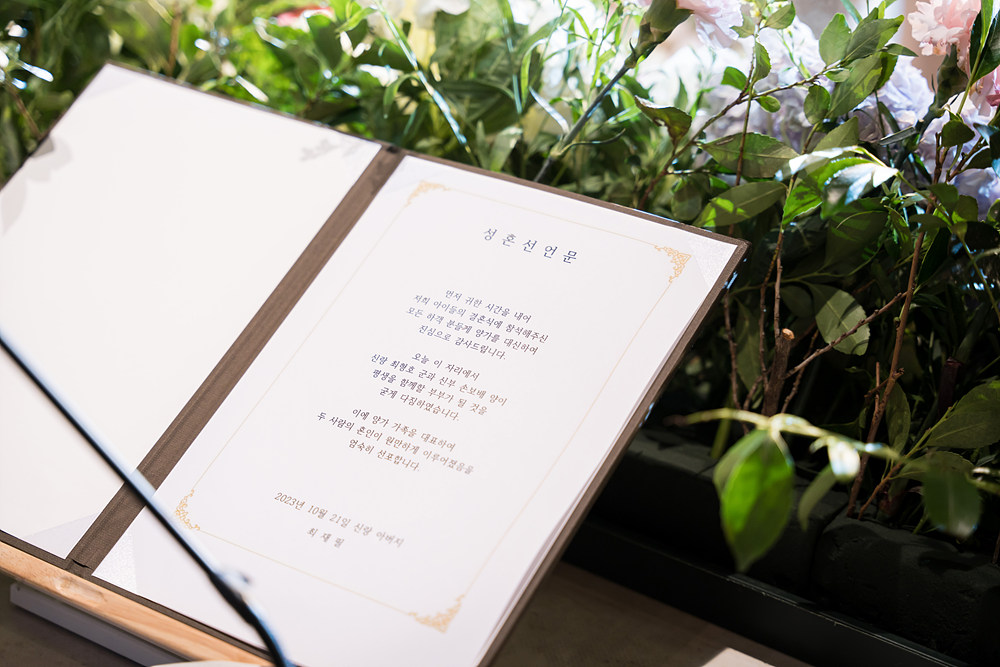 성혼선언문
먼저 귀한 시간을 내어
저희 아이들의 결혼식에 참석해주신
모든 하객 분들께 양가를 대신하여
진심으로 감사드립니다.
오늘 이 자리에서
신랑 최형호 군과 신부 손보배 양이
평생을 함께할 부부가 될 것을
굳게 다짐하였습니다.
이에 양가 가족을 대표하여
두 사람의 혼인이 원만하게 이루어졌음을
엄숙히 선포합니다.
2023년 10월 21일 신랑 아버지
최재필